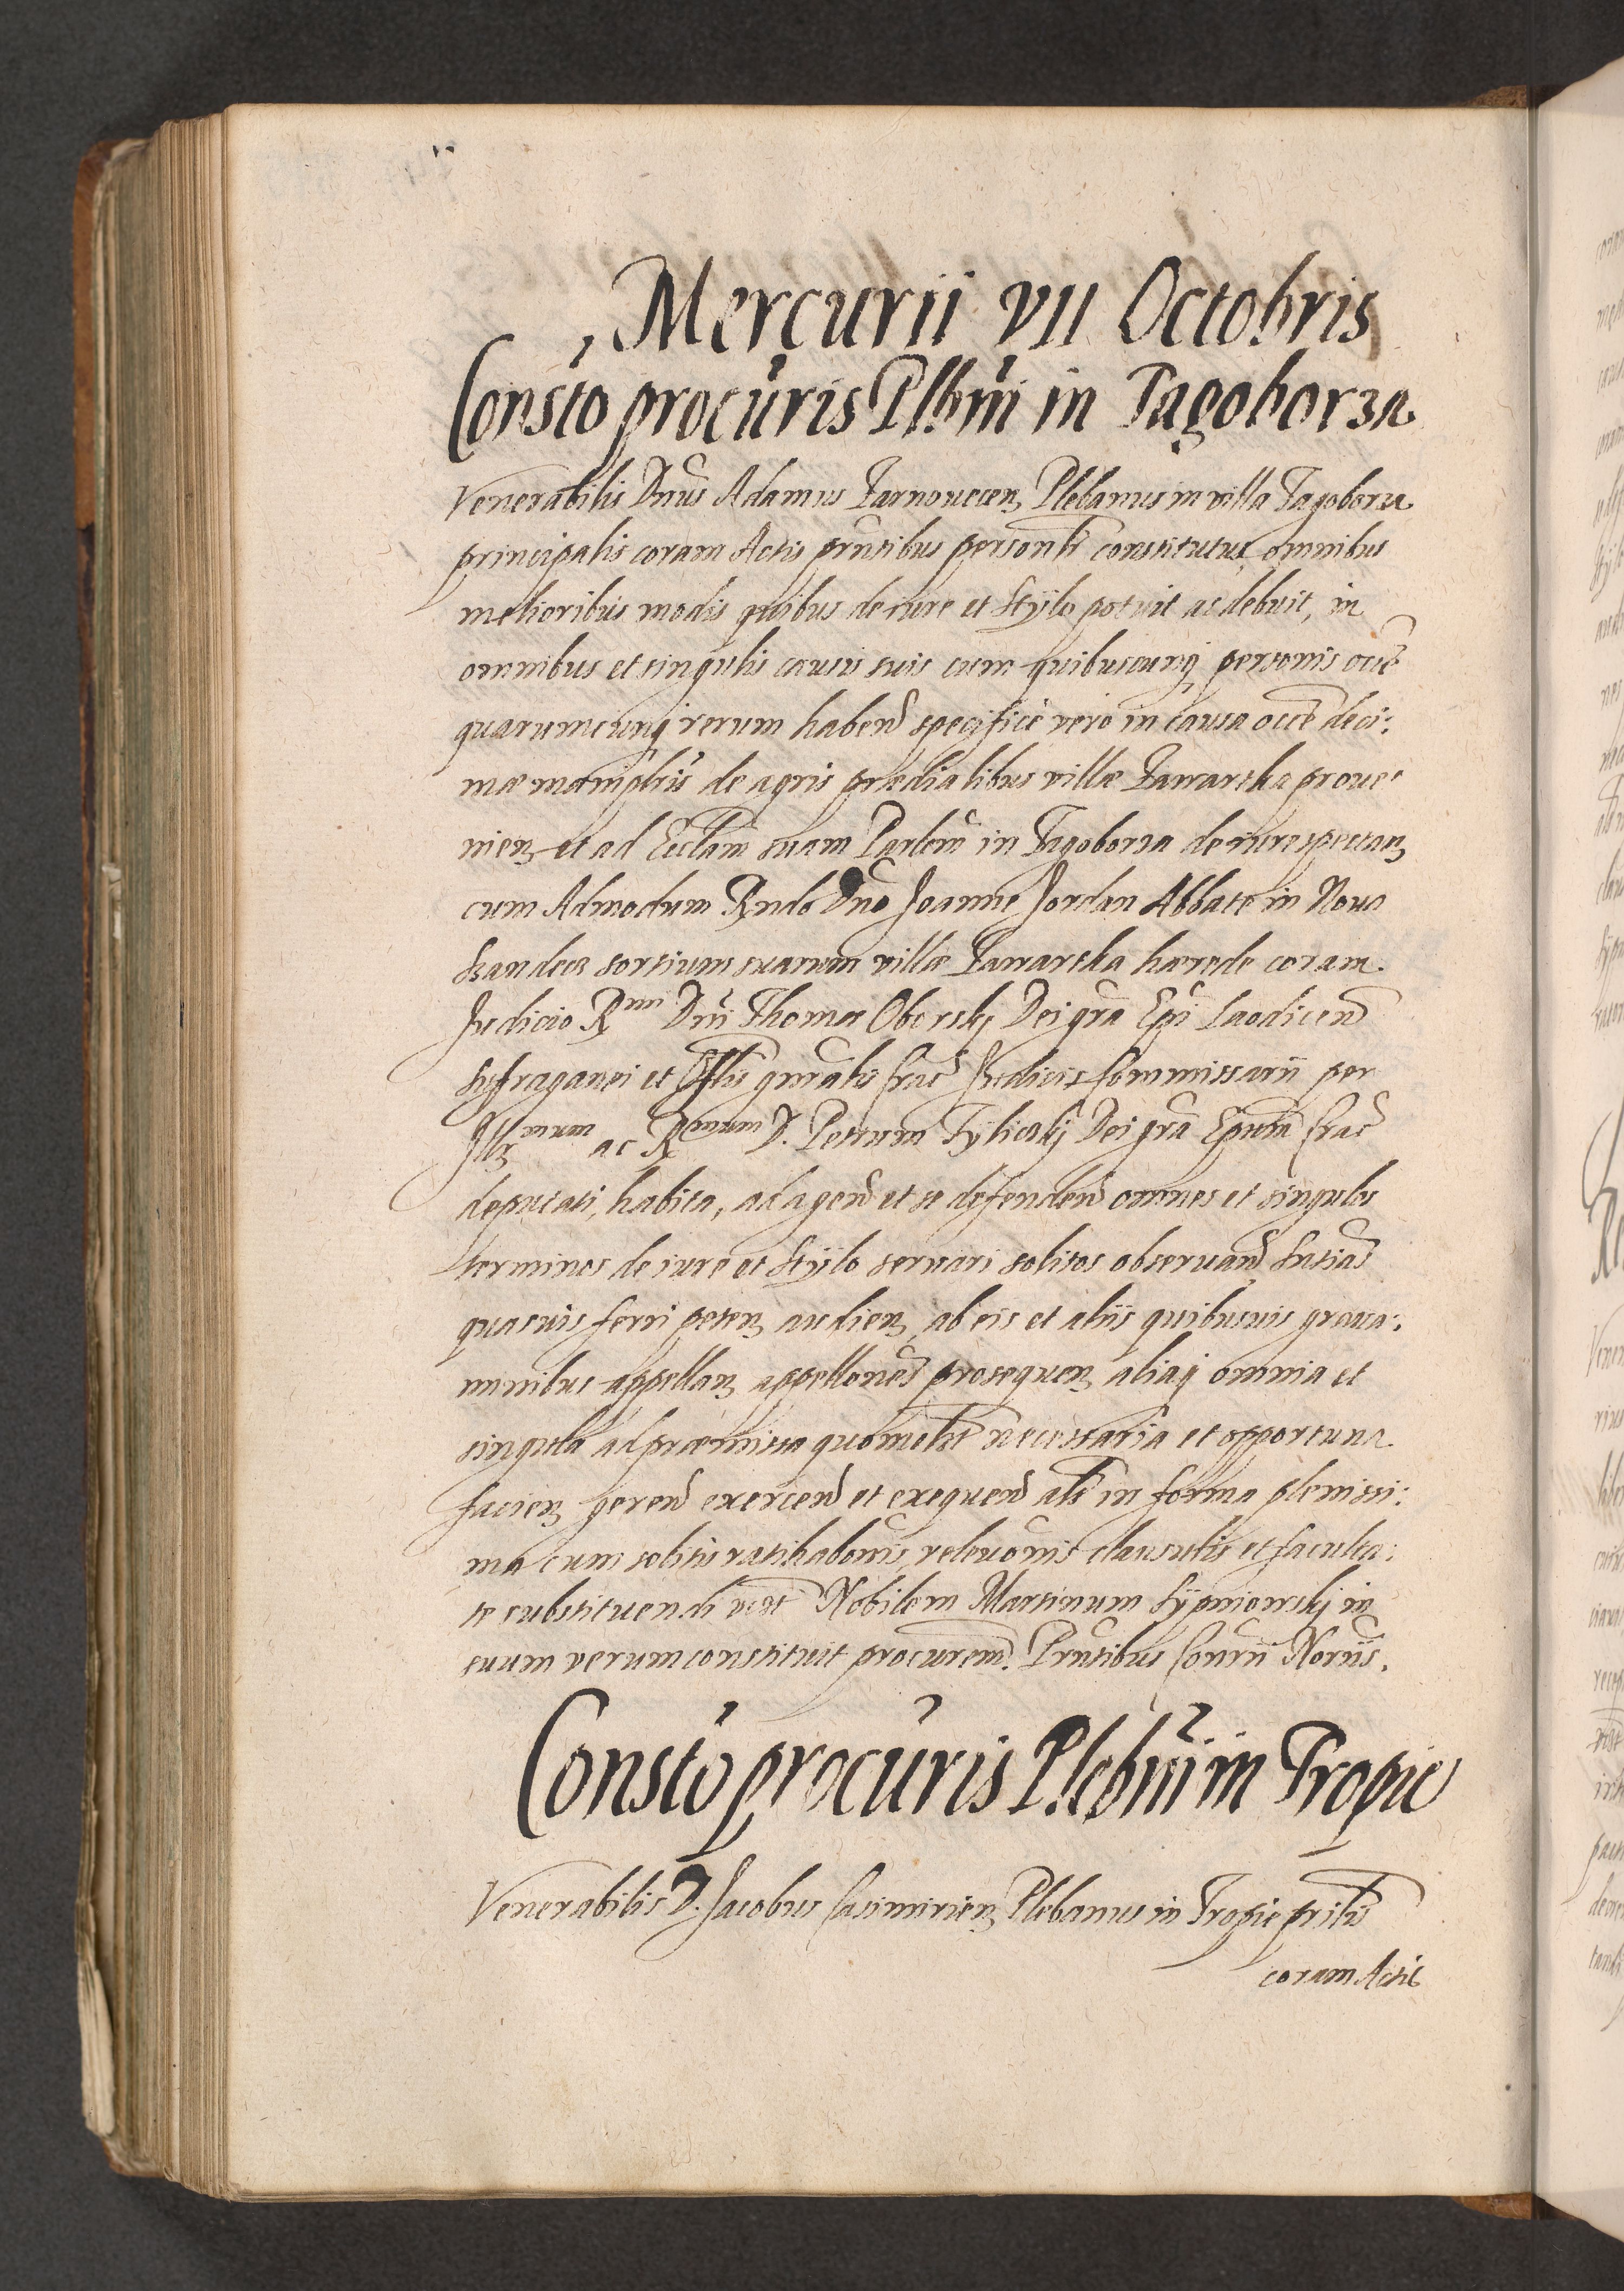 Mercurii VII Octobris
Consto procuris Plbni in Tągoborza
Venerabilis Dnus Adamus Tarnouecen Plebanus in villa Tągoborza
principalis coram Actis prntibus personlr constitutus, omnibus
melioribus modis quibus de iure et Stylo potuit ac debuit, in
omnibus et singulis causis suis cum quibuscunq personis occe
quarumcunq rerum habend specifice vero in causa occe deci:
mæ maniplris de agris prædialibus villæ Zawarska proue:
nien et ad Ecclam suam Parlem in Tągoborza de iure spectan
cum Admodum Rndo Dno Joanne Jordan Abbate in Noua
Sandecz sortium suarum villæ Zawarska hærede coram
Judicio Rmi Dni Thomæ Oborskj Dei gra Epi Laodicen
Suffraganei et Offlis gnralis Crac Judicis Commissarii per
Illmum ac Rmum D. Petrum Tylickj Dei gra Epum Crac
deputati, habita, ad agend et se defendend omnes et singulos
terminos de iure et Stylo seruari solitos obseruand Sntias
quasuis ferri peten audien, ab eis et aliis quibusuis graua:
minibus appellan appellones prosequen aliaq omnia et
singula ad præmissa quomlbt necessaria et opportuna
facien gerend exercend et exequend als in forma plenissi:
ma cum solitis ratihabonis, releuonis clausulis et faculta:
te substituendi Nobilem Martinum Sypniowskj in
suum verum constituit procurem. Prntibus Conrii Noriis.
Consto procuris Plebni in Tropie
Venerabilis D. Jacobus Casimirien Plebanus in Tropie prilis
coram Actis